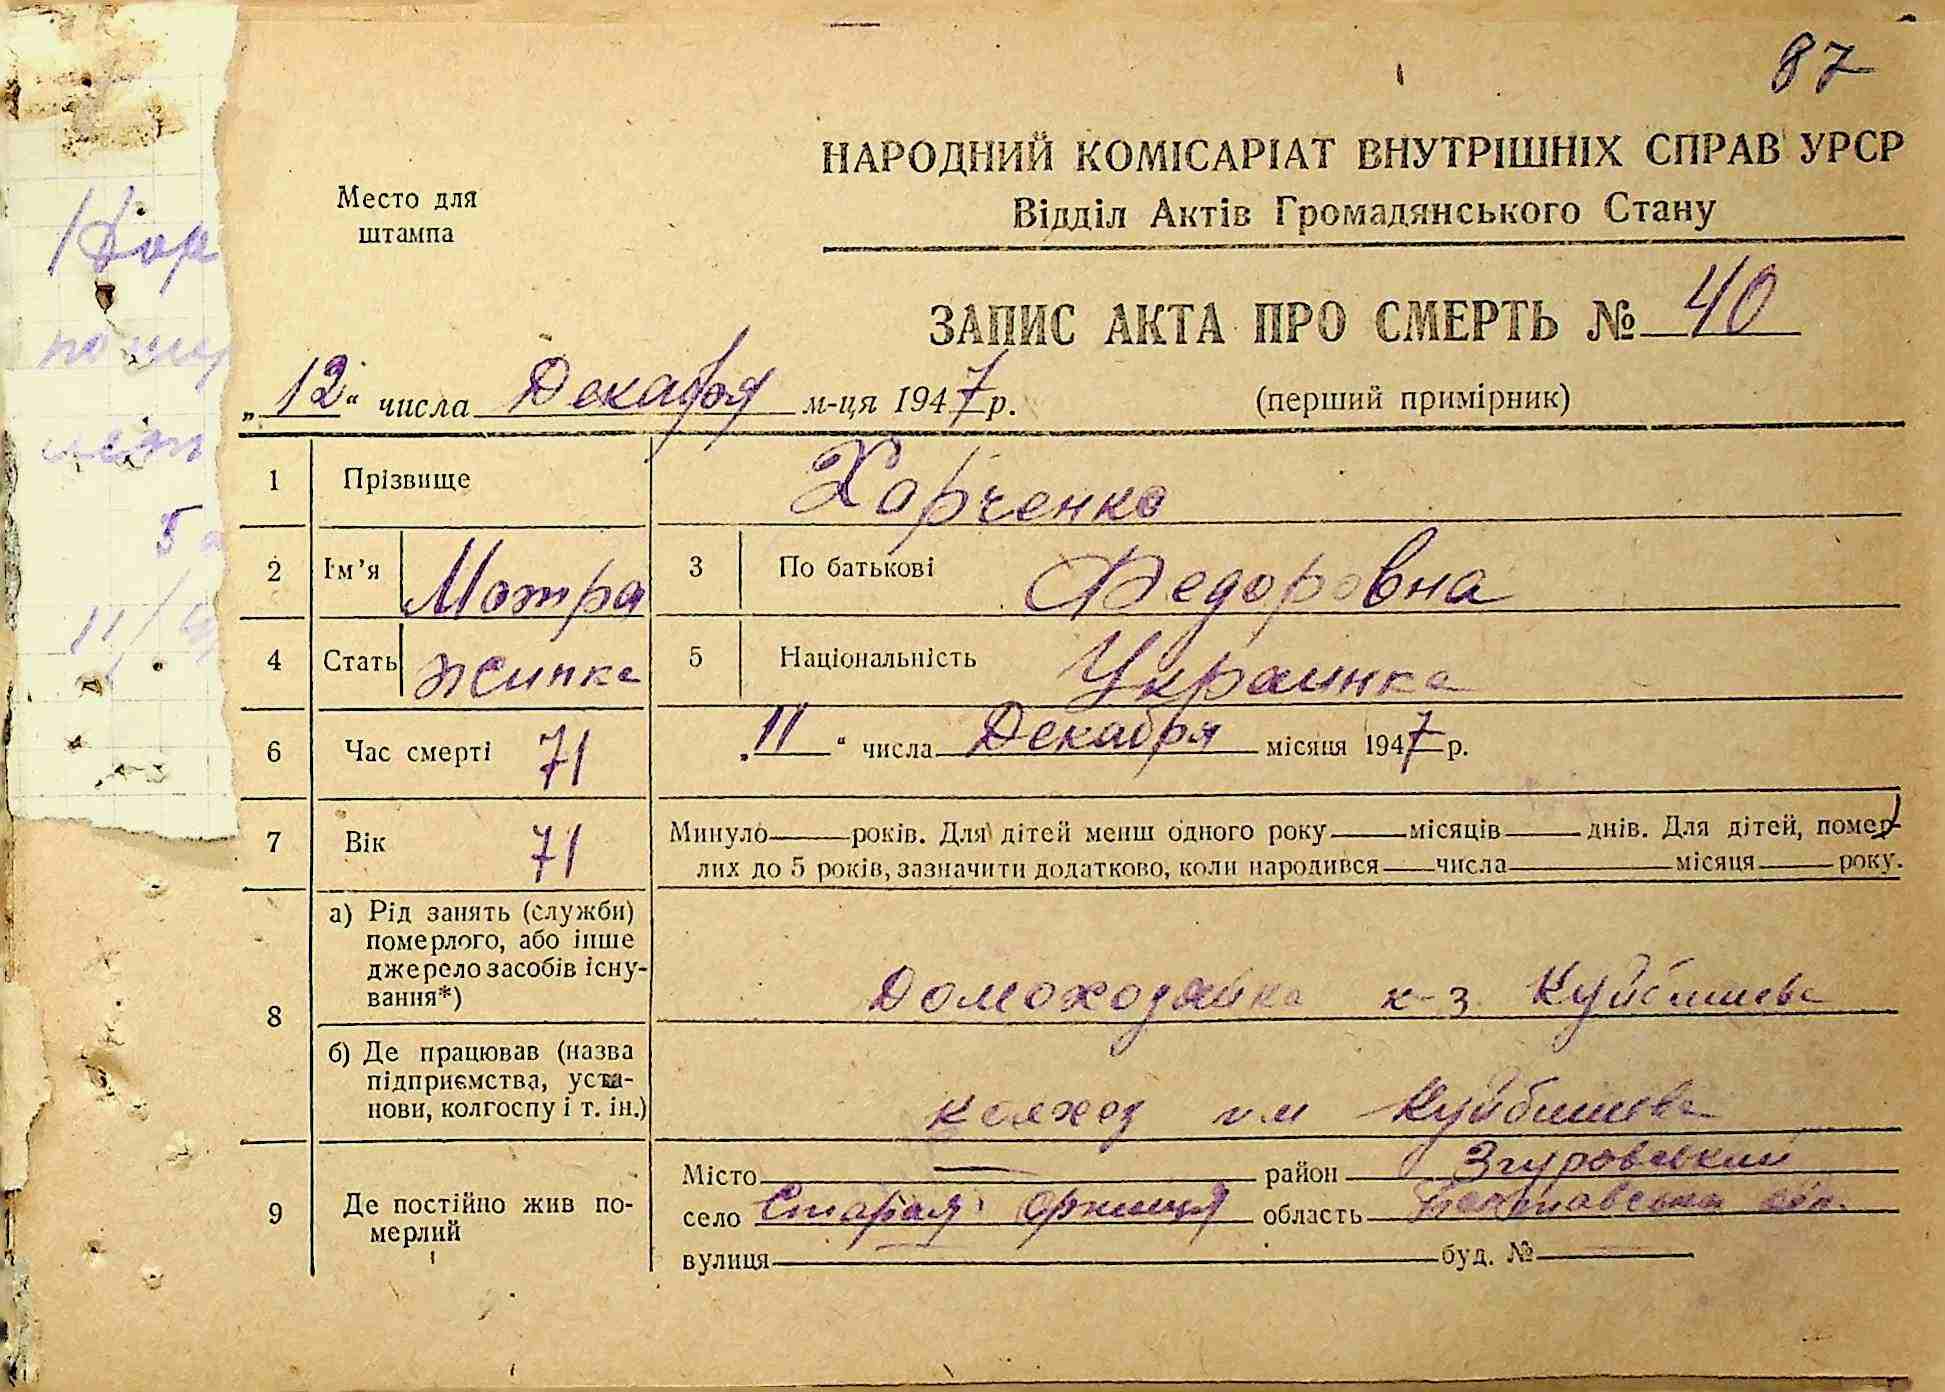 87
НАРОДНИЙ КОМІСАРІАТ ВНУТРІШНІХ СПРАВ УРСР
Відділ Актів Громадянського Стану
Место для
штампа
ЗАПИС АКТА ПРО СМЕРТЬ № 40
„12“ числа Декабря м-ця 1947 р. (перший примірник)
1 Прізвище Харченко
2 Ім’я Мотра 3 По батькові Федоровна
4 Стать жинка 5 Національність Украинка
6 Час смерті 71 „11“ числа Декабря місяця 1947 р.
7 Вік 71 Минуло років. Для дітей менш одного року місяців днів. Для дітей, помер-
лих до 5 років, зазначити додатково, коли народився числа місяця року.
8 а) Рід занять (служби)
померлого, або інше
джерело засобів існу-
вання*)
Домохозяйка к-з Куйбишева
б) Де працював (назва
підприємства, уста-
нови, колгоспу і т. ін.)
колхоз им Куйбишева
9 Де постійно жив по-
мерлий
Місто — район Згуровський
село Старая Оржиця область Полтавська обл.
вулиця буд. №